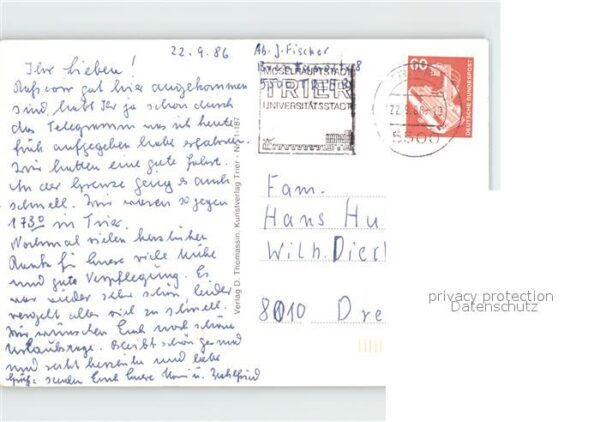 22.9.86 Ab. J. Fischer
Ihr Lieben!
Daß wir gut hier angekommen
sind, habt Ihr ja schon durch
das Telegramm was ich heute
früh aufgegeben habe erfahren.
Wir hatten eine gute Fahrt.
An der Grenze ging es auch
schnell. Wir waren so gegen
17³⁰ in Trier.
Nochmal vielen herzlichen
Dank für Eure viele Mühe
und gute Verpflegung. Es
war wieder sehr schön, leider
vergeht alles viel zu schnell.
Wir wünschen Euch noch schöne
Urlaubstage. Bleibt schön gesund
und seid herzliche und liebe
Grüße senden Euch Eure u.
Verlag D. Thomassin, Kunstverlag Trier
MOSELHAUPTSTADT
TRIER
UNIVERSITÄTSSTADT
22.9.86
5500
60
DEUTSCHE BUNDESPOST
Fam.
Hans Hu
Wilh. Dier
8010 Dre
privacy protection
Datenschutz